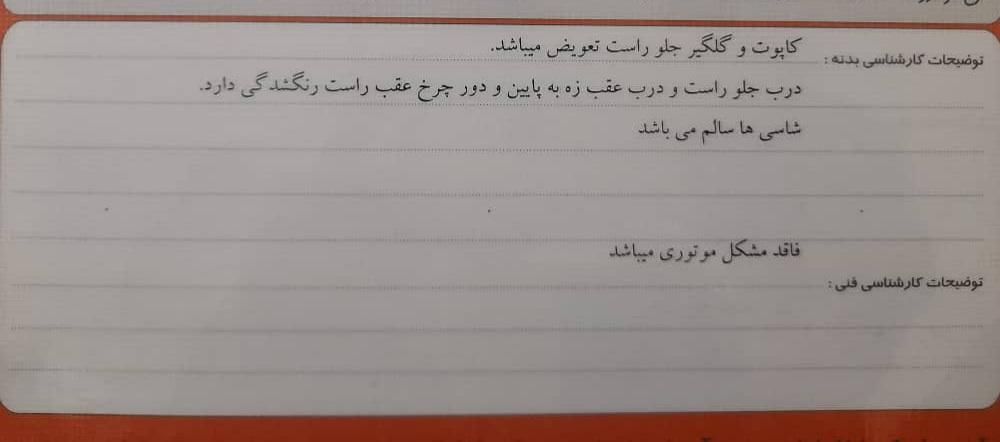 توضیحات کارشناسی بدنه :
کاپوت و گلگیر جلو راست تعویض میباشد.
درب جلو راست و درب عقب زه به پایین و دور چرخ عقب راست رنگشدگی دارد.
شاسی ها سالم می باشد
فاقد مشکل موتوری میباشد
توضیحات کارشناسی فنی :